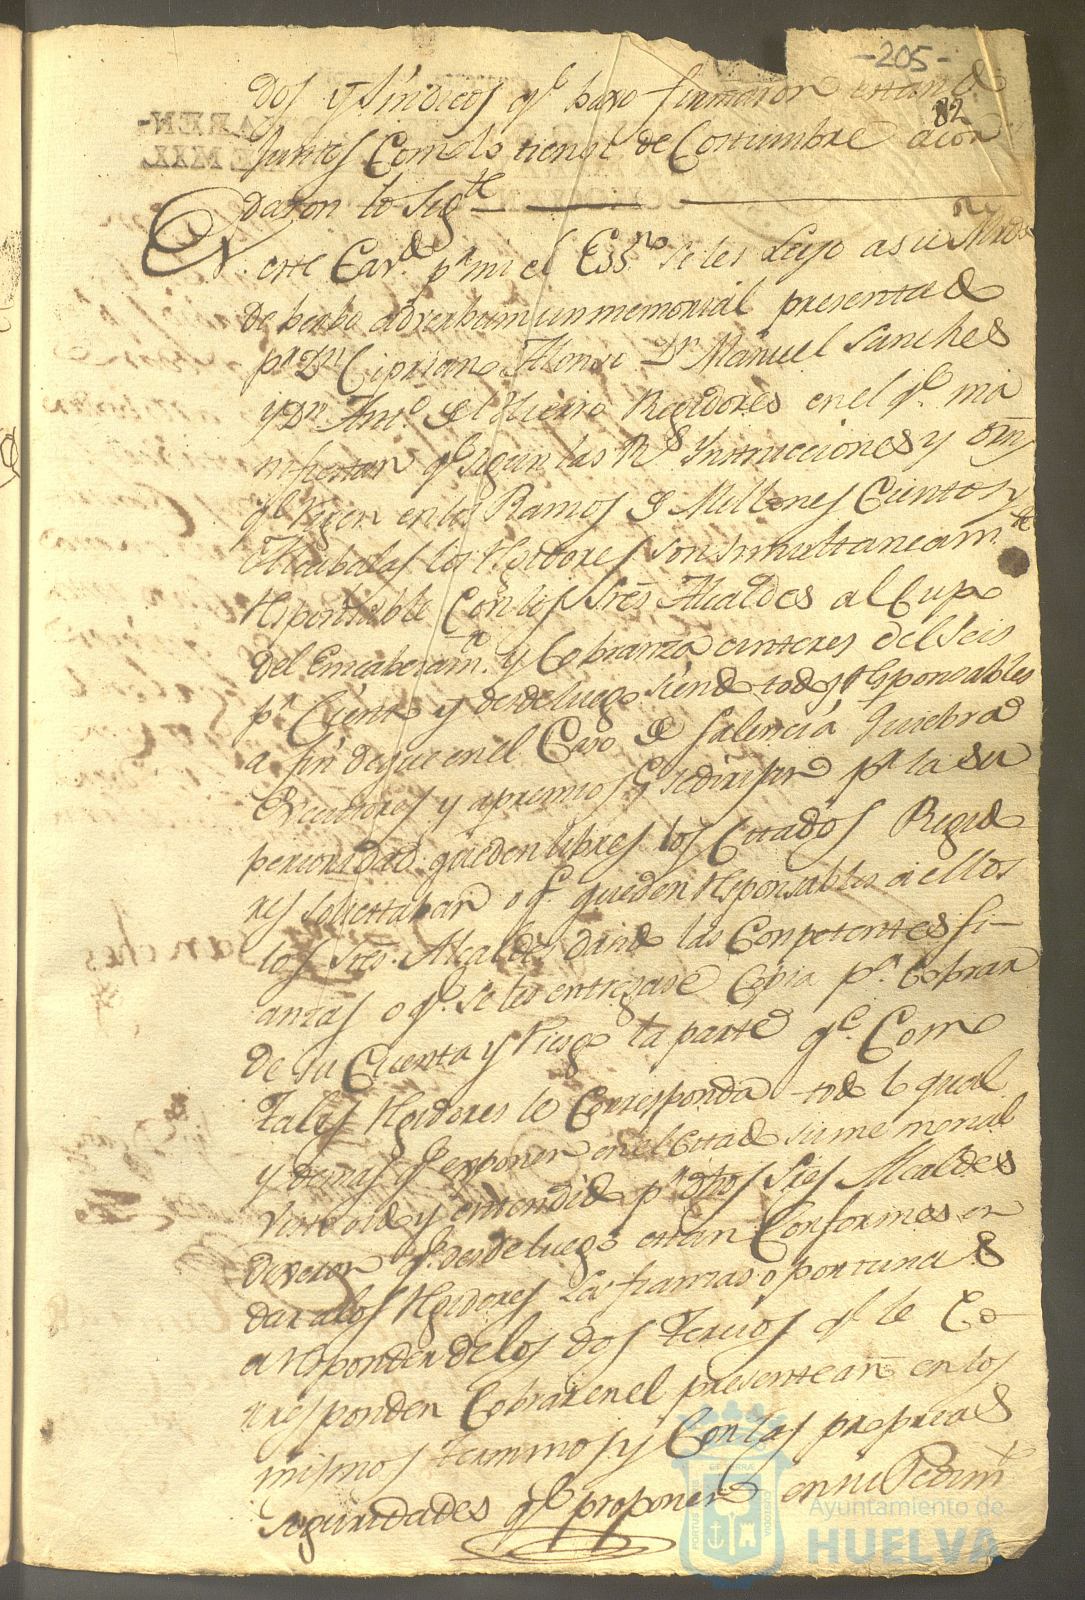 -205-
82
dos y Sindicos q.e baxo firmaron estand
Juntos Como lo tienen de Costumbre acor
daron lo sig.te
En este Cav.do p.r mi el Ess.no se les Leyo a sus Mrds
un memorial presentado
p.r D.n Cipriano Alonso D.n Manuel Sanches
y D.n Ant.o del Hierro Regidores en el q.e ma
nifiestan q.e segun las R.s Instrucciones y orns
q.e rigen en los Ramos de Millones Cientos y
Alcabalas los Regidores son simultaneam.te
responsable Con los Sres Alcaldes al Cupo
del Encabezam.to y Cobranza a interes del seis
p.r Ciento y desde luego siendo todos responsables
a fin de que en el Caso de falencia Quiebra
Executores y apremios q se dirijan p.a la su
perioridad queden libres los Citados Regid
res solicitaban o q.e queden responsables a ellos
los Sres. Alcaldes dando las Conpetentes fi-
anzas o q.e se les entregase Copia p.a Cobrar
de su Cuenta y riesgo la parte q.e Como
tales Regidores le Corresponda todo lo qual
y demas q.e exponen en el Citado su memorial
visto oido y entendido p.r dhos Sres Alcaldes
dixeron q.e desde luego estan Conformes en
dar a los Regidores las fianzas oportunas
a responder de los dos Tercios q.e le Co-
rresponden Cobrar en el presente año en los
mismos terminos y Con las propias
seguridades q.e proponen en su Pedim.to
Ayuntamiento de
HUELVA